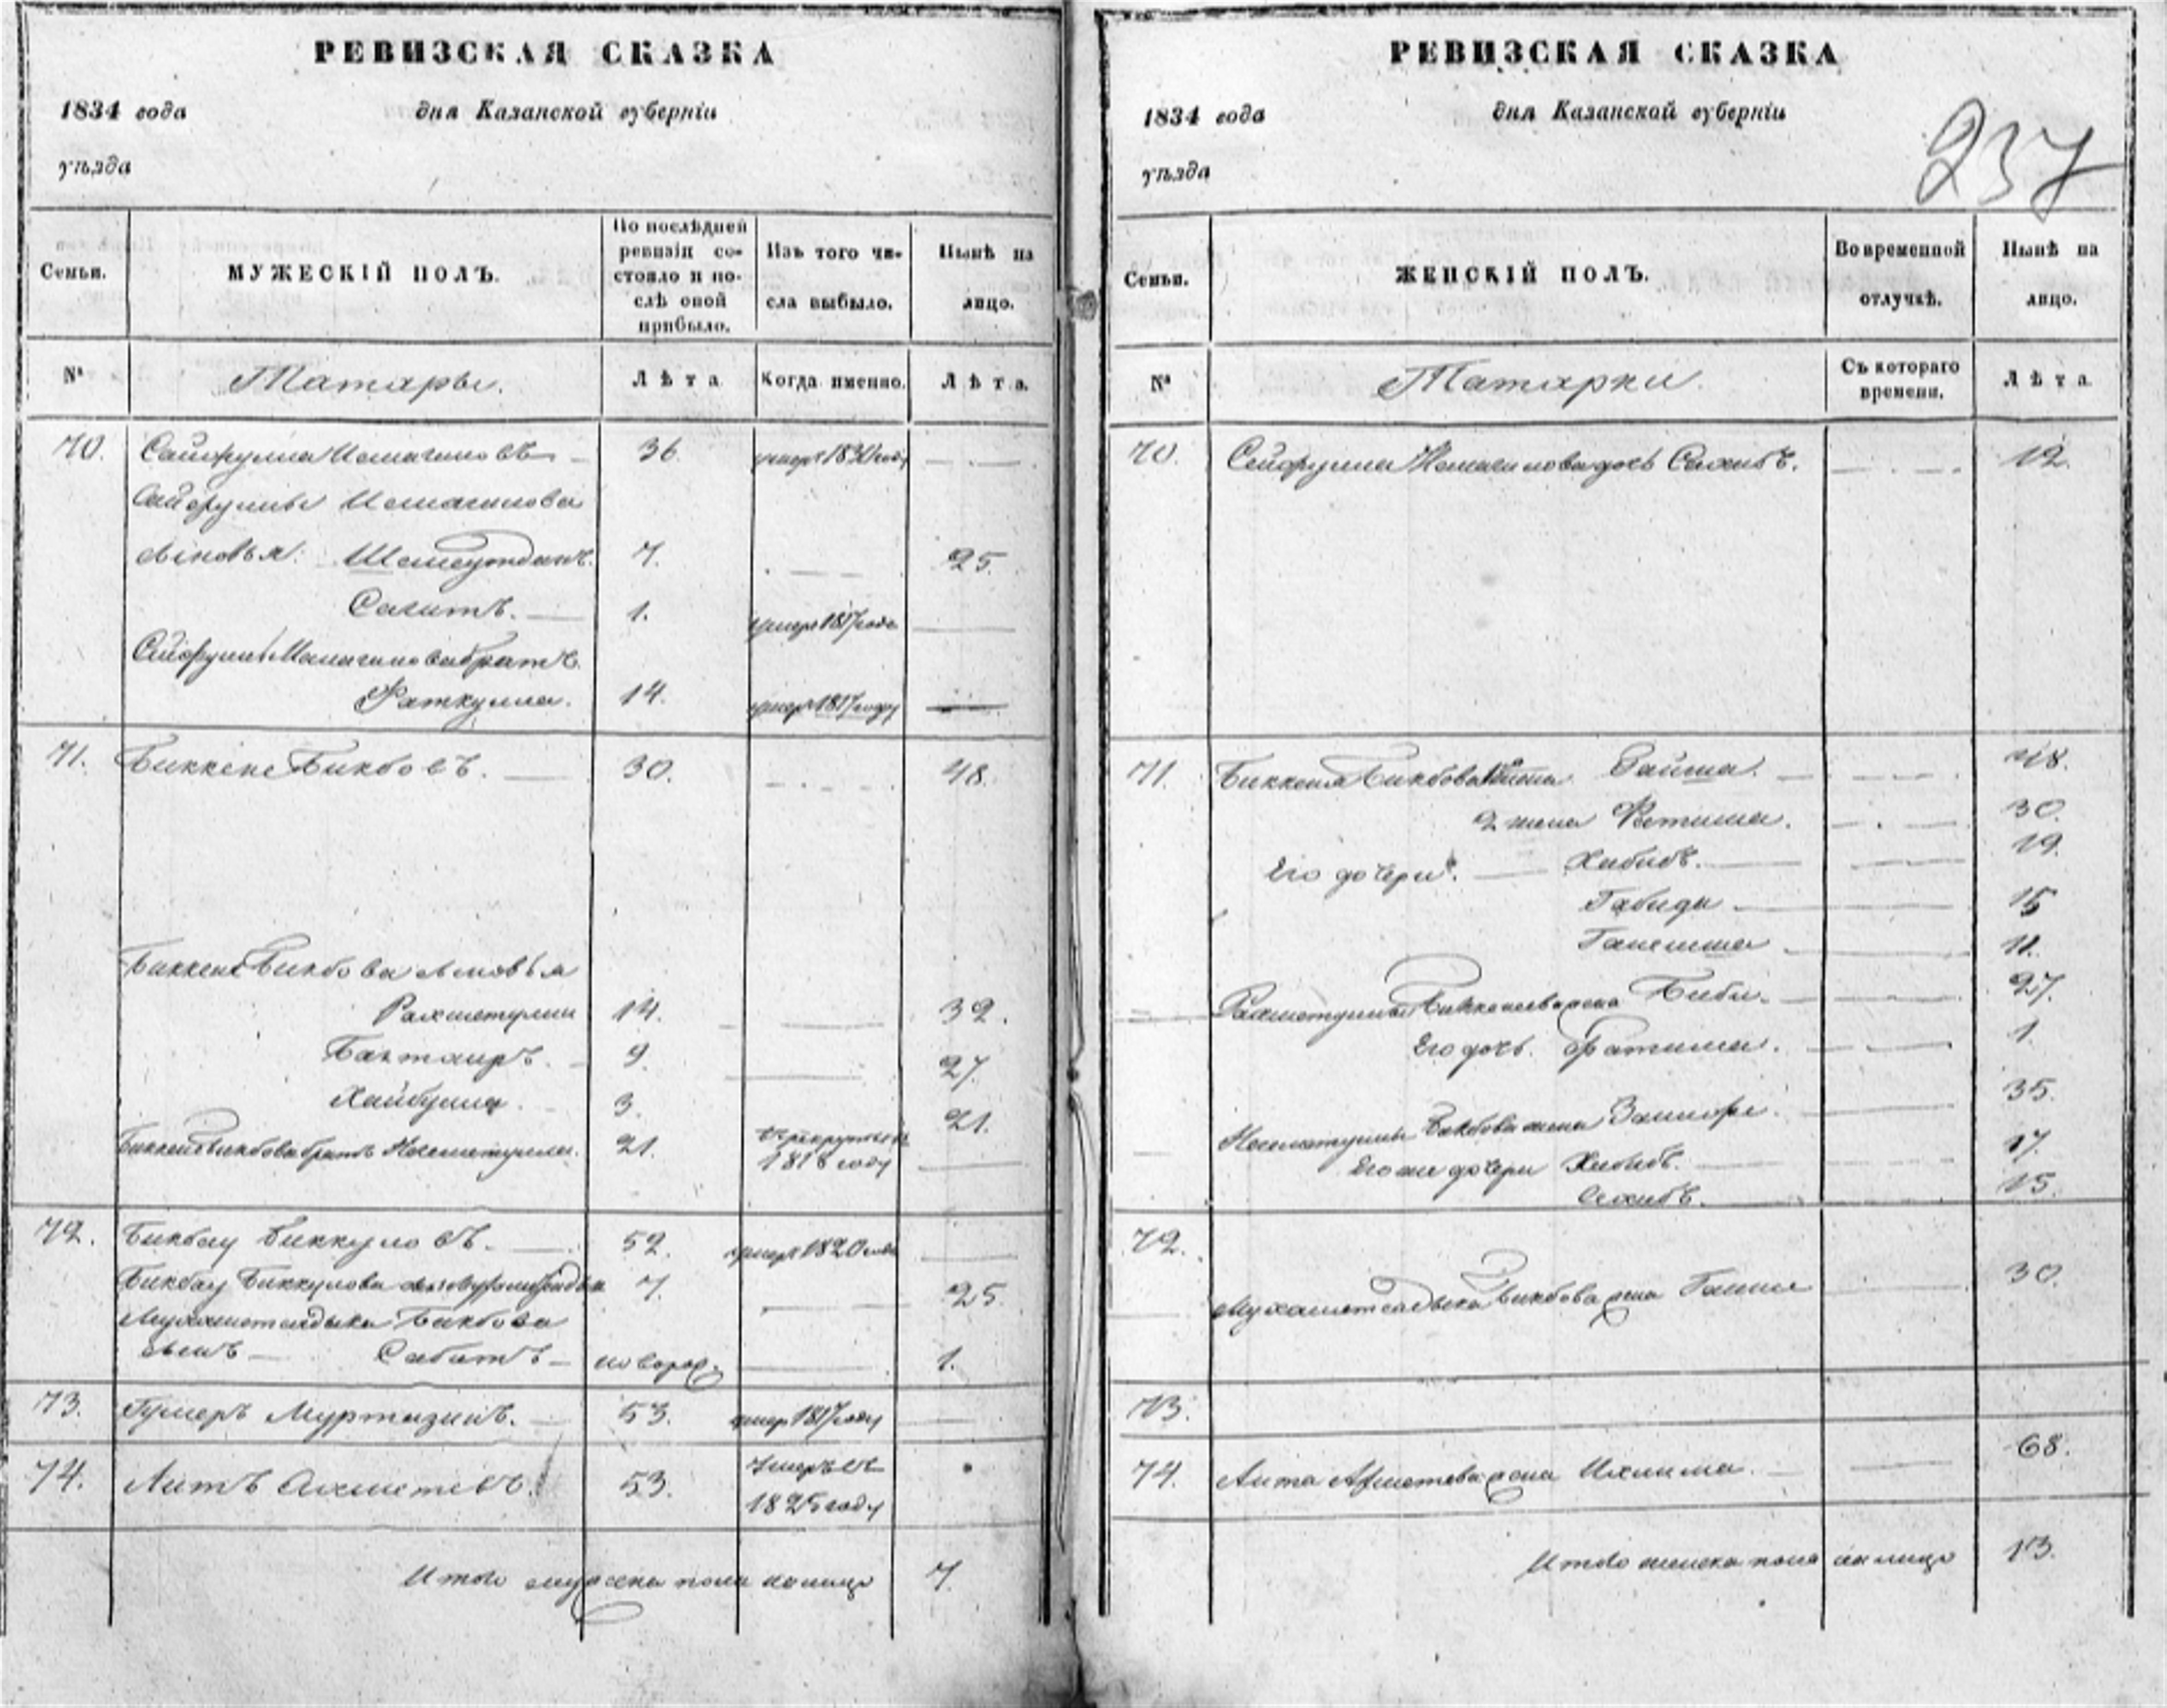 РЕВИЗСКАЯ СКАЗКА
1834 года дня Казанской губерніи
уѣзда
Семьи. МУЖЕСКІЙ ПОЛЪ. По послѣдней ревизіи состояло и послѣ оной прибыло. Изъ того числа выбыло. Нынѣ на лицо.
№ Татары. Лѣта Когда именно. Лѣта.
70. Сайфулла Исмагиловъ 36. умеръ 1830 году
Сайфуллы Исмагилова
сыновья: Шамсутдинъ. 7. 25.
Сагитъ. 1. умеръ 1817 года
Сайфуллы Исмагилова братъ
Фаткулла. 14. умеръ 1817 году
71. Биккене Бикбовъ. 30. 48.
Биккене Бикбова сыновья
Рахметулла 14. 32.
Бахтаиръ. 9. 27.
Хайбулла 3. 21.
Биккене Бикбова братъ 21. 1818 году
72. Бикбау Биккуловъ. 52. умеръ 1820 года
Бикбау Биккулова сынъ 7. 25.
Мухаметсадыка Бикбова
сынъ Сабитъ новорож. 1.
73. Гумеръ Муртазинъ. 53. умеръ 1817 году
74. Аитъ Ахметевъ. 53. Умеръ въ
1825 году
Итого мужска пола на лицо 7.
РЕВИЗСКАЯ СКАЗКА
1834 года дня Казанской губерніи
уѣзда
237
Семьи. ЖЕНСКІЙ ПОЛЪ. Во временной отлучкѣ. Нынѣ на лицо.
№ Татарки. Съ котораго времени. Лѣта
70. Сейфуллы Исмагилова дочь Сахибъ. 12.
71. Биккеня Бикбова Гайша. 48.
2 жена Фатима. 30.
Его дочери. Хабибъ. 19.
Габида 15
11.
Рахметуллы Биккенева жена Биби. 27.
Его дочь. Фатима. 1.
Бикбова жена 35.
Его же дочери Хабибъ. 17.
Сахибъ. 15.
72.
Мухаметсадыка Бикбова жена 30.
73.
74. Аита Ахметева жена 68.
Итого женска пола на лицо 13.